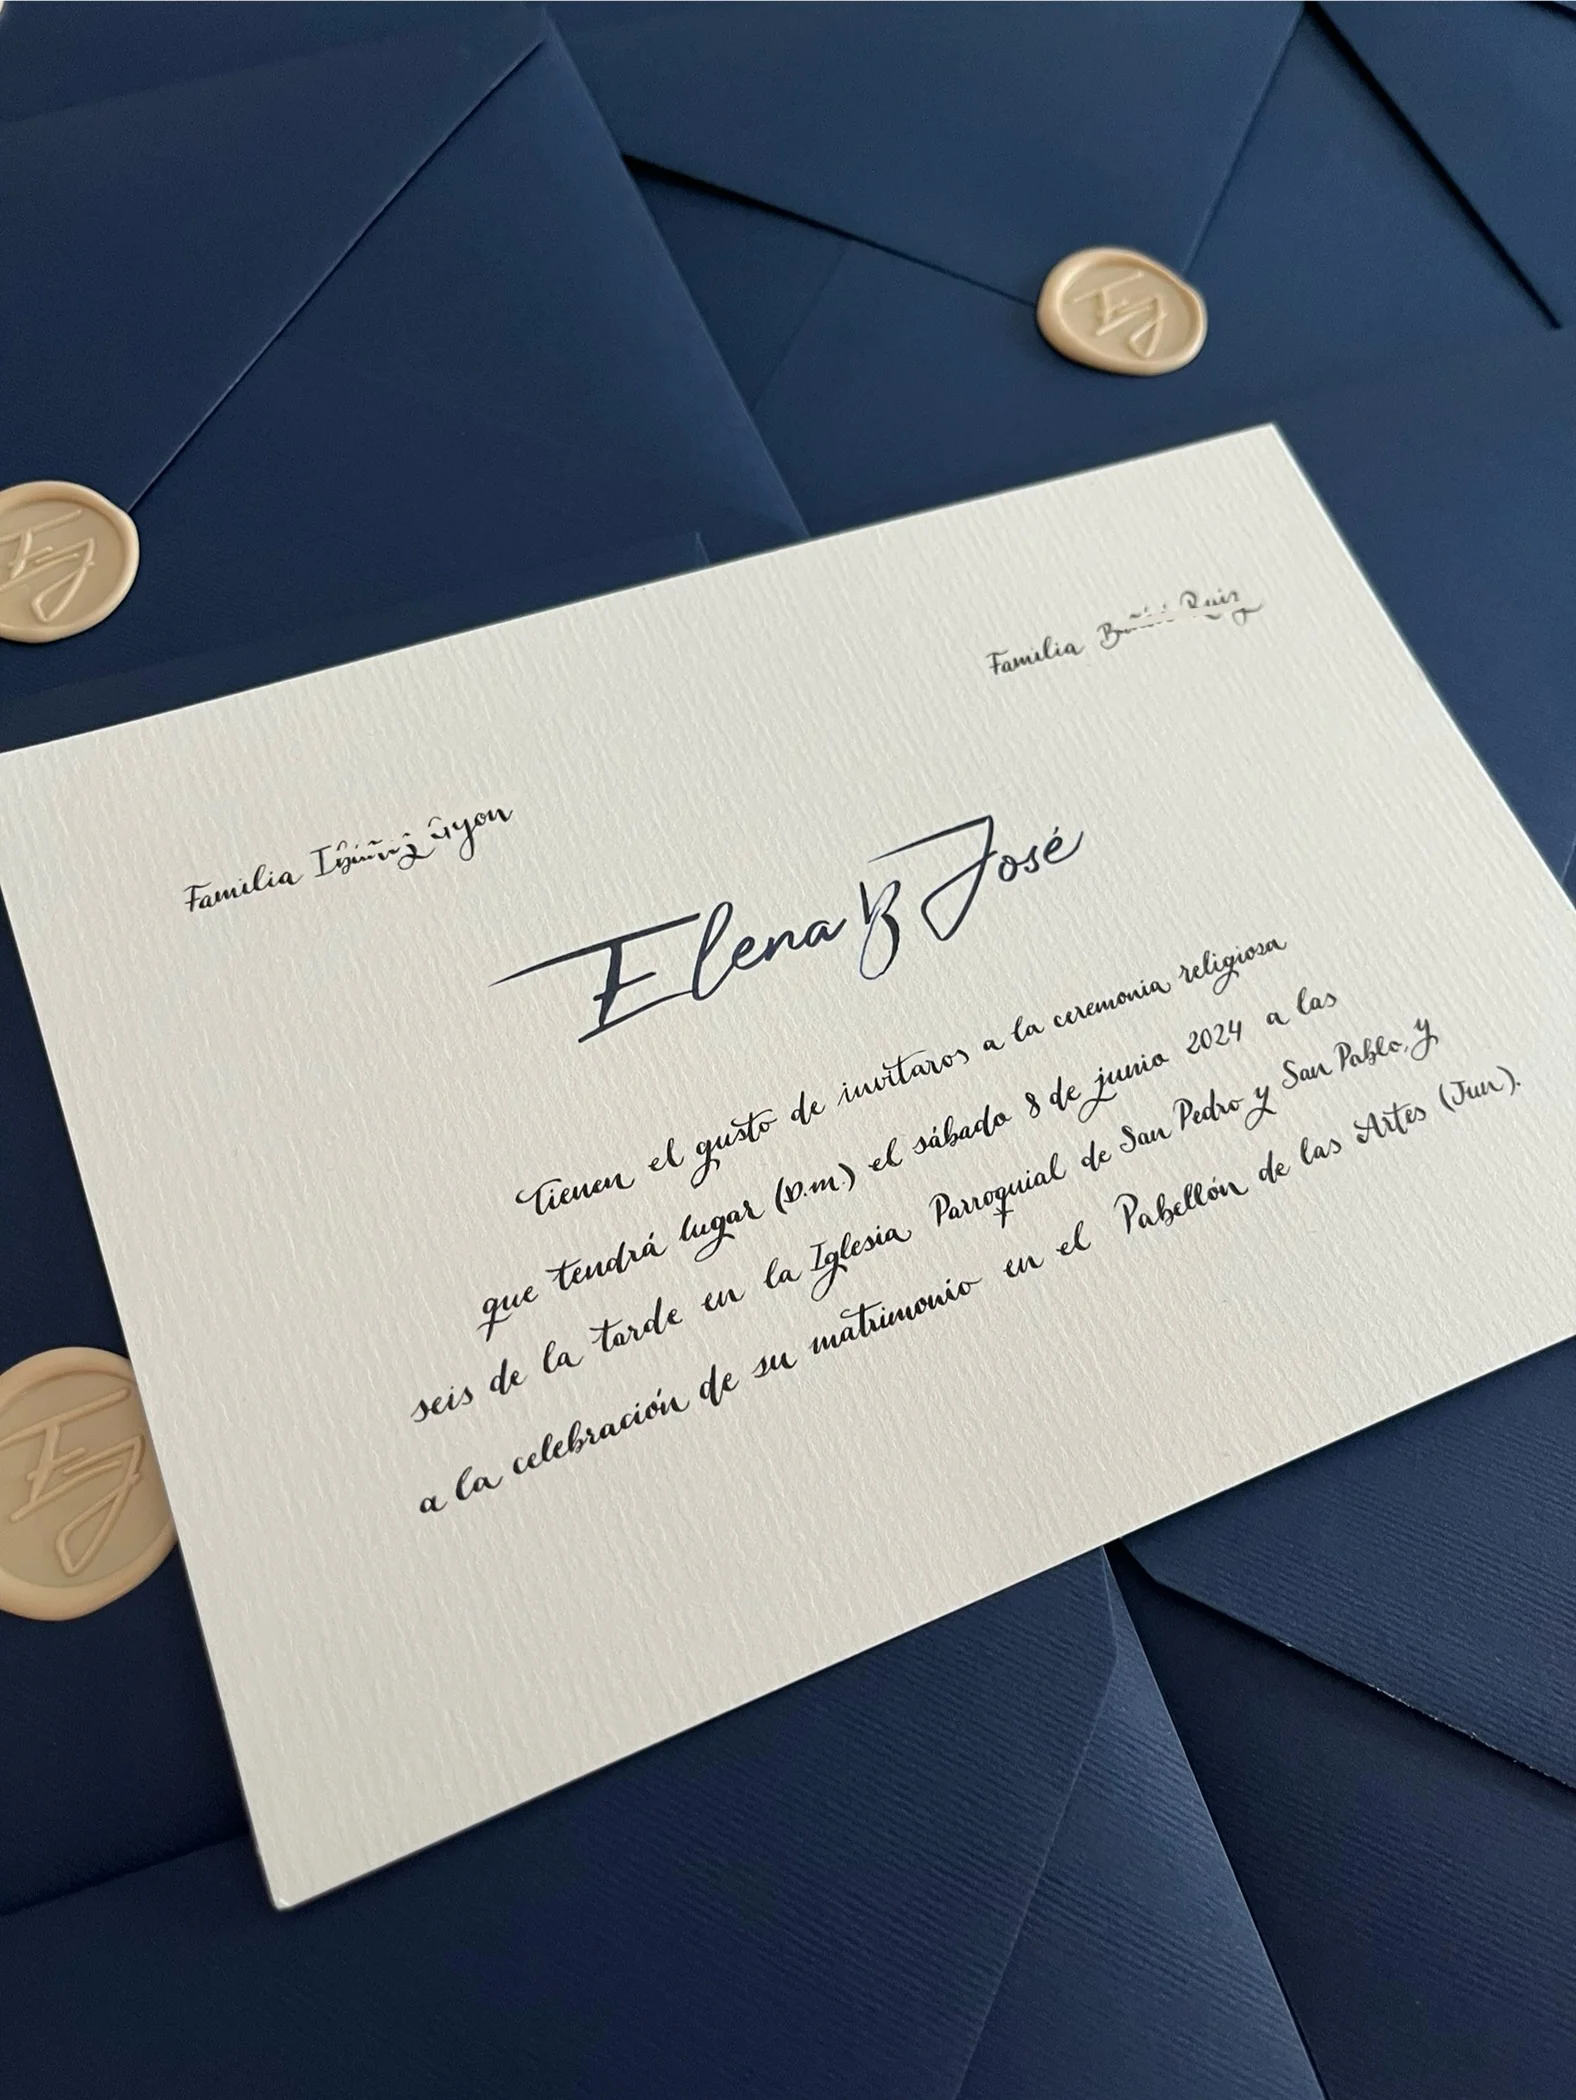 Familia
Familia Ruiz
Elena y José
Tienen el gusto de invitaros a la ceremonia religiosa
que tendrá lugar (D.m.) el sábado 8 de junio 2024 a las
seis de la tarde en la Iglesia Parroquial de San Pedro y San Pablo, y
a la celebración de su matrimonio en el Pabellón de las Artes (Jun).
EJ
EJ
EJ